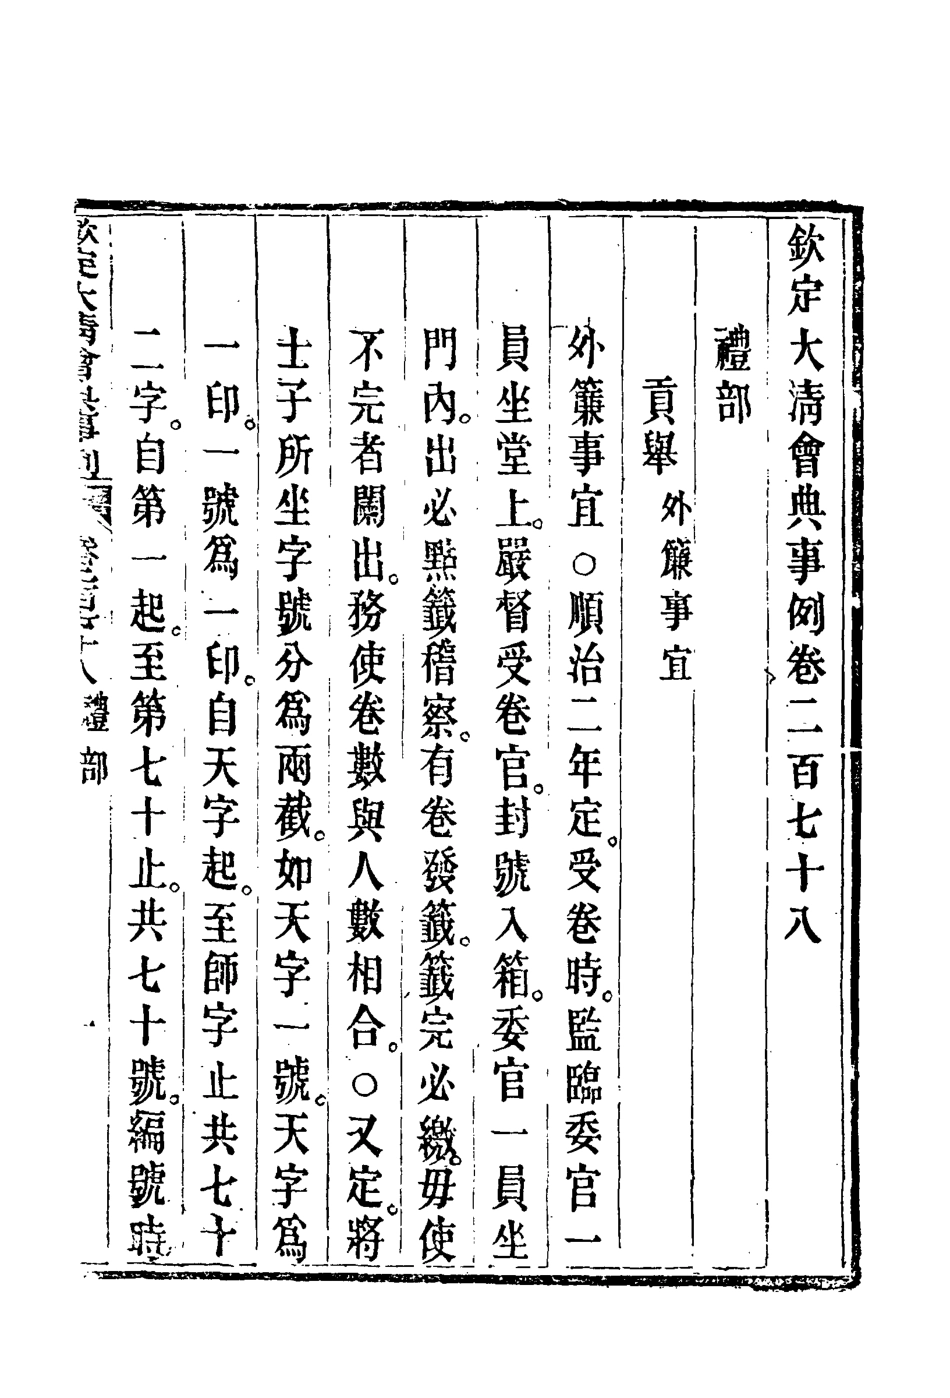 欽定大清會典事例卷二百七十八
禮部
貢舉 外簾事宜
外簾事宜○順治二年定。受卷時。監臨委官一
員坐堂上。嚴督受卷官。封號入箱。委官一員坐
門內。出必點籤稽察。有卷發籤。籤完必繳。毋使
不完者闌出。務使卷數與人數相合。○又定。將
士子所坐字號分爲兩截。如天字一號。天字爲
一印。一號爲一印。自天字起。至師字止共七十
二字。自第一起。至第七十止。共七十號。編號時
欽定大清會典事例 卷二百七十八 禮部 一